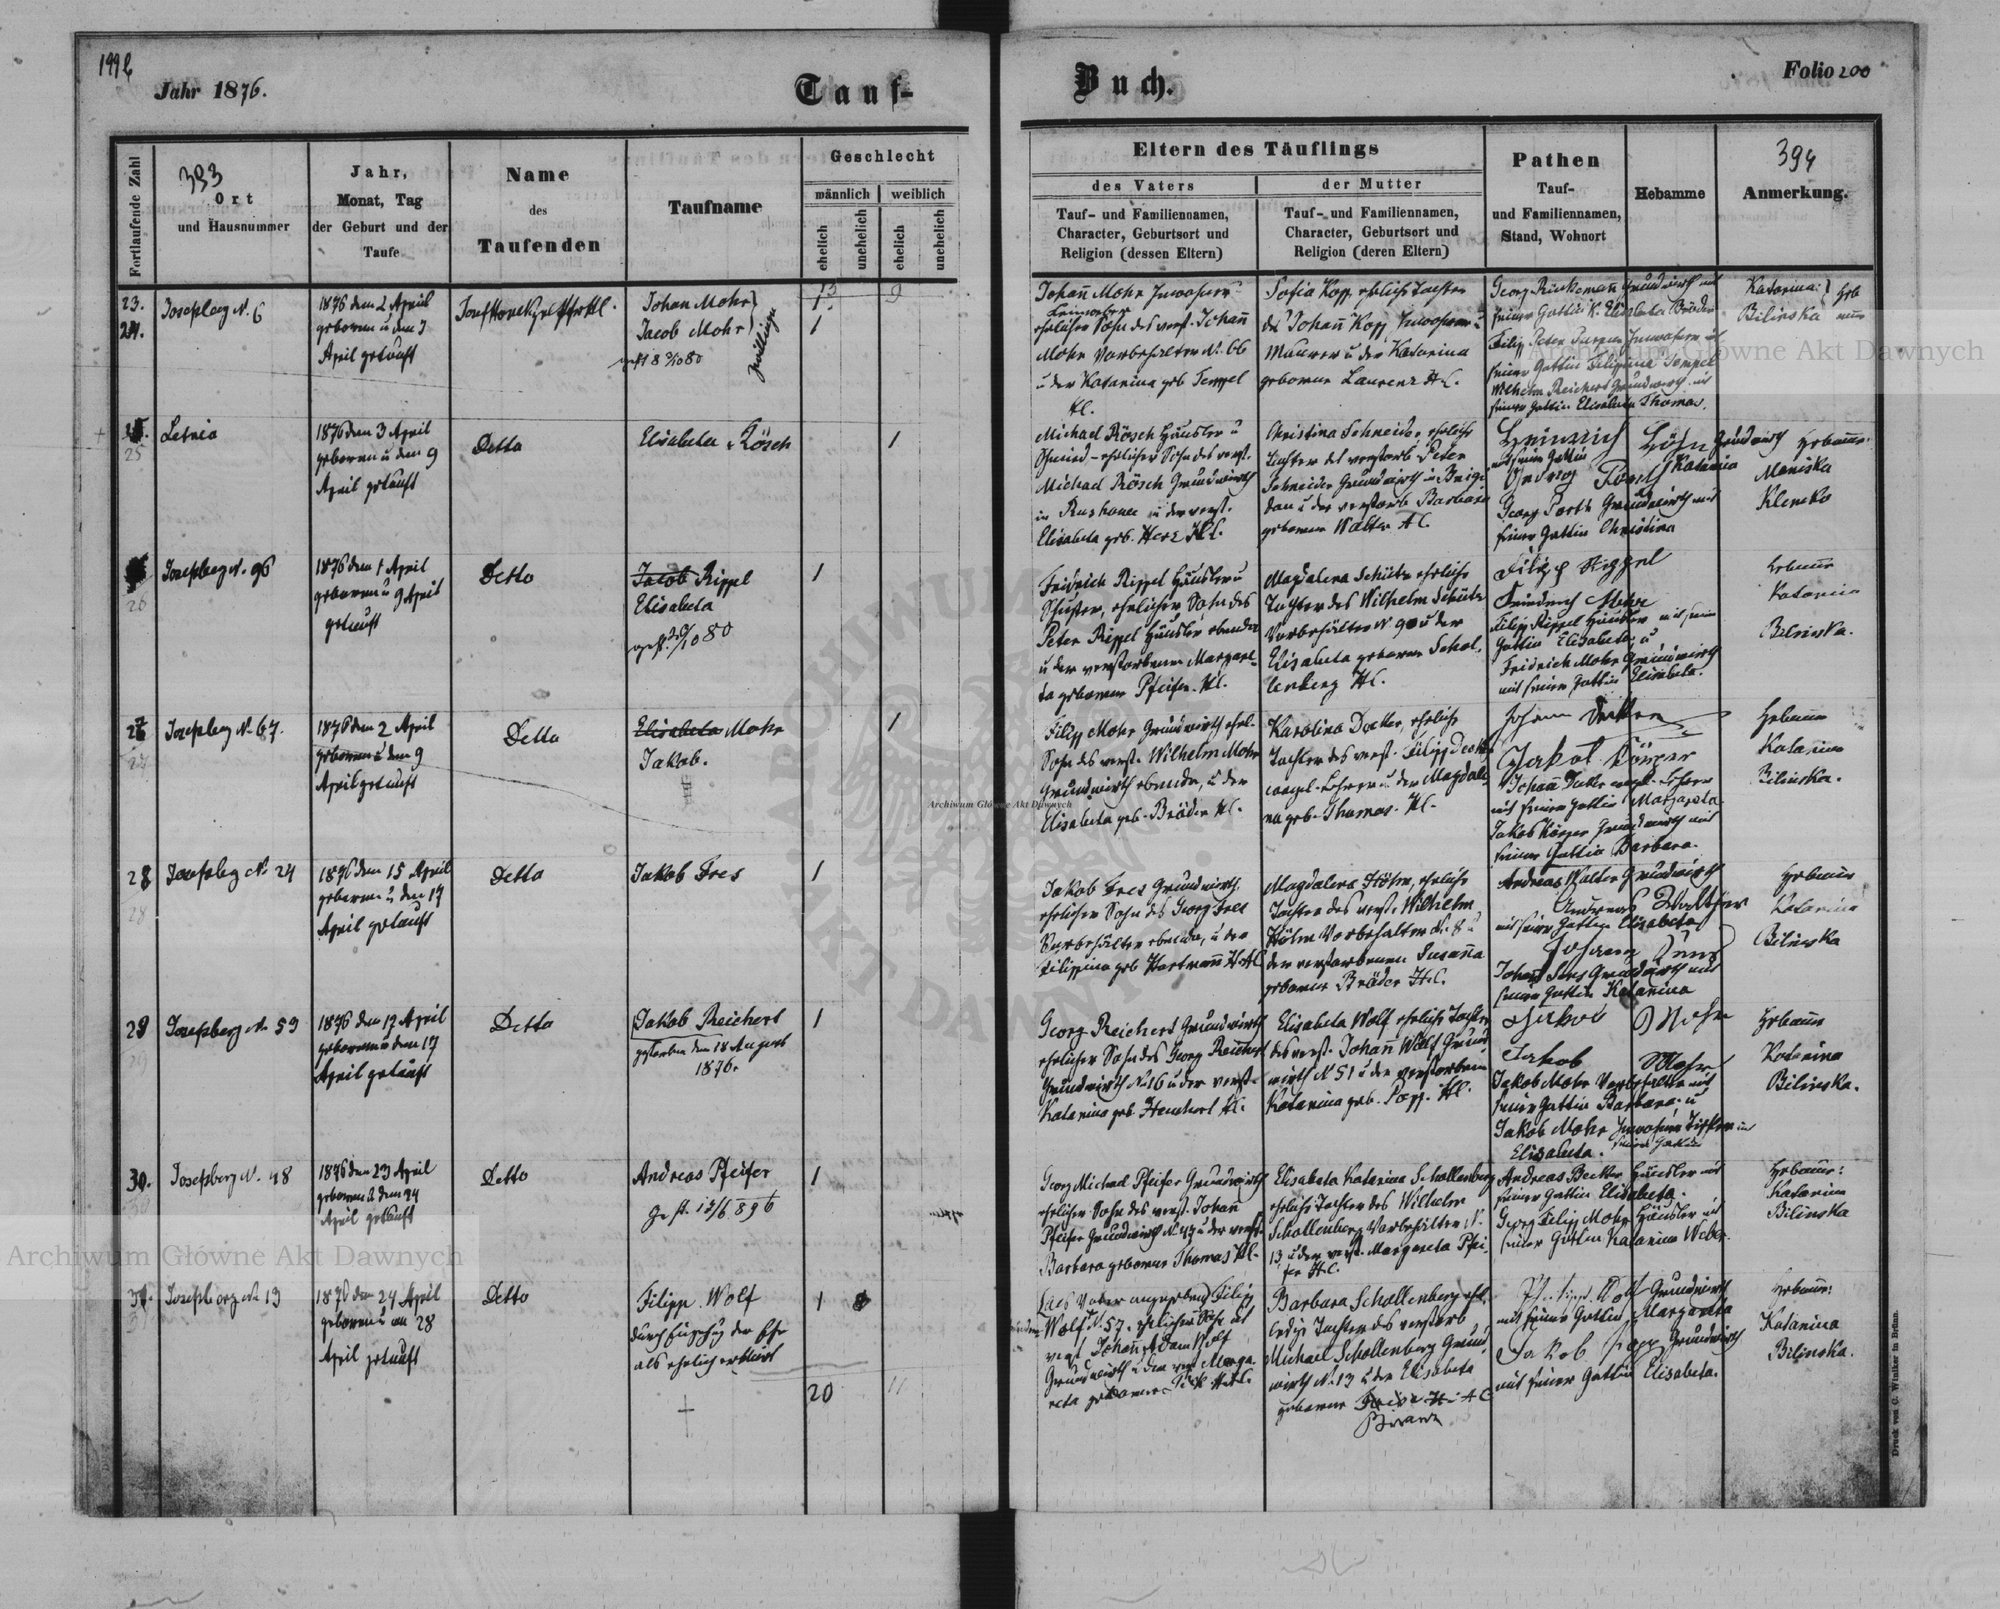 1992
Jahr 1876.
Tauf-
Buch.
Folio 200
Fortlaufende Zahl
393
Ort
und Hausnummer
Jahr,
Monat, Tag
der Geburt und der
Taufe
Name
des
Taufenden
Taufname
Geschlecht
männlich
weiblich
ehelich
unehelich
ehelich
unehelich
Eltern des Täuflings
des Vaters
der Mutter
Tauf- und Familiennamen,
Character, Geburtsort und
Religion (dessen Eltern)
Tauf- und Familiennamen,
Character, Geburtsort und
Religion (deren Eltern)
Pathen
Tauf-
und Familiennamen,
Stand, Wohnort
Hebamme
394
Anmerkung.
23.
24.
Josefsberg N. 6
1876 den 2 April
geboren u den 3
April getauft
Johan Mohr
Jacob Mohr
Zwillinge
1
Johann Mohr Inwohner
ehelicher Sohn des verst. Johann
Mohr Vorbehalter N. 66
u der Katarina geb Tempel
H.C.
Sofia Kopp eheliche Tochter
des Johann Kopp Inwohner u
Maurer u der Katarina
geborene Laurenz H.C.
seiner Gattin Elisabeta Bröder
Filipp Peter
seiner Gattin Filipina Tempel
Wilhelm Reichert Grundwirth mit
seiner Gattin Elisabeta Thomas.
Katarina
Bilinska
25
Letnia
1876 den 3 April
geboren u den 9
April getauft
Detto
Elisabeta Rösch
1
Michael Rösch Häusler u
Schmied - ehelicher Sohn des verst.
Michael Rösch Grundwirth
u der verst.
Elisabeta geb. Herz H.C.
Christina Schneider, eheliche
Tochter des verstorb Peter
Schneider Grundwirth in Brigi
dau u der verstorb Barbara
geborene Walter A.C.
Heinrich Höhn Grundwirth
mit seiner Gattin Katarina
Georg Porth Grundwirth mit
seiner Gattin Christina
Hebamme
Klemko
26
Josefsberg N. 96
1876 den 1 April
geboren u 9 April
getauft
Detto
Jacob Rippel
Elisabeta
1
Fridrich Rippel Häusler u
Schuster, ehelicher Sohn des
Peter Rippel Häusler ebenda
u der verstorbenen Margare-
ta geborene Pfeifer. H.C.
Magdalena Schütz eheliche
Tochter des Wilhelm Schütz
Vorbehälter N 90 u der
Elisabeta geborene Schol.
lenberg H.C.
Filipp Rippel
Friedrich Mohr
Filipp Rippel Häusler mit seiner
Gattin Elisabeta u
Fridrich Mohr Grundwirth
mit seiner Gattin Elisabeta.
Hebamme
Katarina
Bilinska.
27
Josefsberg N. 67.
1876 den 2 April
geboren u den 9
April getauft
Detto
Elisabeta Mohr
Jakob.
1
Filipp Mohr Grundwirth ehel.
Sohn des verst. Wilhelm Mohr
Grundwirth ebenda, u der
Elisabeta geb. Bröder H.C.
Karolina Decker, eheliche
Tochter des verst. Filipp Decker
evangel. Lehrer u der Magdale
na geb. Thomas. H.C.
Johann Decker
Jakob Körper
Johann Decker evangl. Lehrer
mit seiner Gattin Margareta
Jakob Körper Grundwirth mit
seiner Gattin Barbara.
Hebamme
Katarina
Bilinska.
28
Josefsberg N. 24
1876 den 15 April
geboren u den 17
April getauft
Detto
Jakob Fres
1
Jakob Fres Grundwirth
ehelicher Sohn des Georg Fres
Vorbehälter ebenda, u der
Filippina geb Hartmann H.C.
Magdalena Höhn, eheliche
Tochter des verst. Wilhelm
Höhn Vorbehalter N. 8 u
der verstorbenen Susanna
geborene Bröder H.C.
Andreas Walter Grundwirth
Andreas Walther
mit seiner Gattin Elisabeta
seiner Gattin Katarina
Hebamme
Katarina
Bilinska
29
Josefsberg N. 59
1876 den 17 April
geboren u den 17
April getauft
Detto
Jakob Reichert
gestorben den 18 August
1876.
1
Georg Reichert Grundwirth
ehelicher Sohn des Georg Reichert
Grundwirth N. 16 u der verst.
Katarina geb. Henchert H.C.
Elisabeta Wolf eheliche Tochter
des verst. Johann Wolf Grund
wirth N 51 u der verstorbenen
Katarina geb. Popp. H.C.
Jakob Mohr
Jakob Mohr
Jakob Mohr Vorbehalter mit
seiner Gattin Barbara u
Jakob Mohr Inwohner Tischler mit
seiner Gattin
Elisabeta.
Hebamme
Katarina
Bilinska.
30.
Josefsberg N. 48
1876 den 23 April
geboren u den 24
April getauft
Detto
Andreas Pfeifer
1
Georg Michael Pfeifer Grundwirth
ehelicher Sohn des verst. Johann
Pfeifer Grundwirth N. 43 u der verst.
Barbara geborene Thomas H.C.
Elisabeta Katarina Schollenberg
eheliche Tochter des Wilhelm
Schollenberg Vorbehälter N.
13 u der verst. Margareta Pfei-
fer H.C.
Andreas Becker Häusler mit
seiner Gattin Elisabeta.
Georg Filipp Mohr Häusler mit
seiner Gattin Katarina Weber.
Hebamme:
Katarina
Bilinska
31.
Josefsberg N. 13
1876 den 24 April
geboren u am 28
April getauft
Detto
Filipp. Wolf
als ehelich erklärt
1
20
11
Als Vater angegeben Filipp
Wolf N. 57. ehelicher Sohn des
verst. Johann Adam Wolf
Grundwirth u der verst Marga-
reta geborene
Barbara Schollenberg ehel.
ledige Tochter des verstorb
Michael Schollenberg Grund
wirth N. 13 u der Elisabeta
geborene
Grundwirth
mit seiner Gattin Margareta
Jakob Popp Grundwirth
mit seiner Gattin Elisabeta.
Hebamme:
Katarina
Bilinska.
Druck von C. Winiker in Brünn.
Archiwum Główne Akt Dawnych
Archiwum Główne Akt Dawnych
Archiwum Główne Akt Dawnych